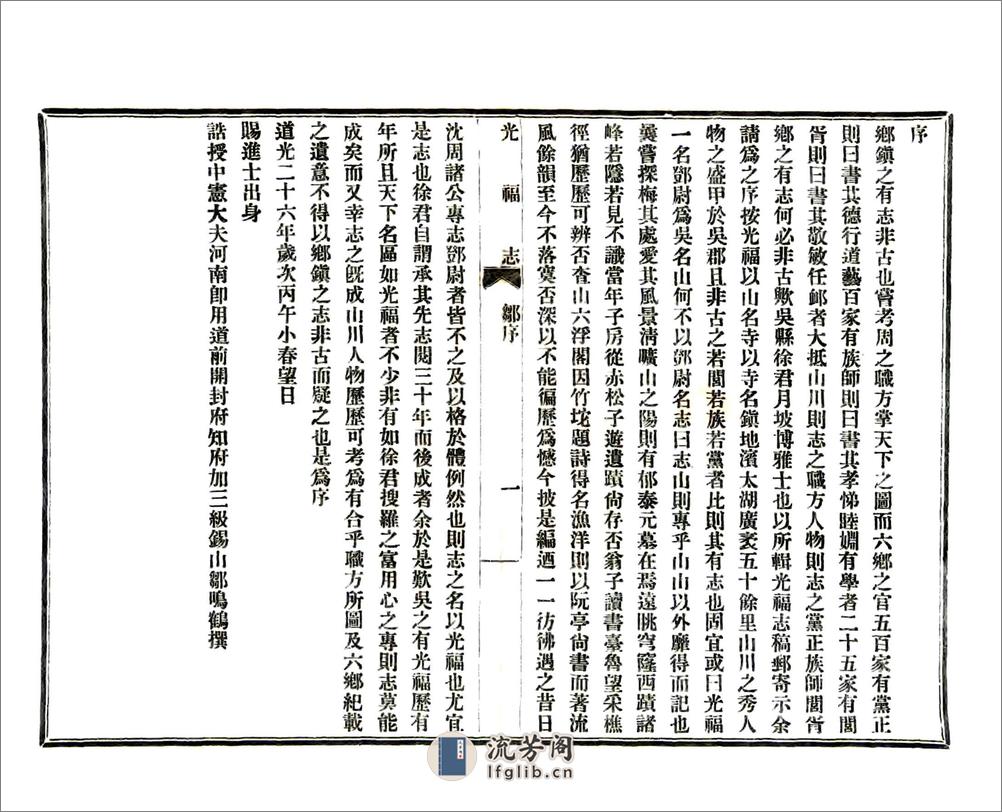 序
鄉鎮之有志非古也嘗考周之職方掌天下之圖而六鄉之官五百家有黨正
則曰書其德行道藝百家有族師則曰書其孝悌睦婣有學者二十五家有閭
胥則曰書其敬敏任卹者大抵山川則志之職方人物則志之黨正族師閭胥
鄉之有志何必非古歟吳縣徐君月坡博雅士也以所輯光福志稿郵寄示余
請爲之序按光福以山名寺以寺名鎮地濱太湖廣袤五十餘里山川之秀人
物之盛甲於吳郡且非古之若閭若族若黨者比則其有志也固宜或曰光福
一名鄧尉爲吳名山何不以鄧尉名志曰志山則專乎山山以外靡得而記也
曩嘗探梅其處愛其風景清曠山之陽則有郁泰元墓在焉遠眺穹窿西蹟諸
峰若隱若見不識當年子房從赤松子遊遺蹟尙存否翁子讀書臺魯望采樵
徑猶歷歷可辨否査山六浮閣因竹垞題詩得名漁洋則以阮亭尙書而著流
風餘韻至今不落寞否深以不能徧歷爲憾今披是編迺一一彷彿遇之昔日
光福志 鄒序 一
沈周諸公專志鄧尉者皆不之及以格於體例然也則志之名以光福也尤宜
是志也徐君自謂承其先志閱三十年而後成者余於是歎吳之有光福歷有
年所且天下名區如光福者不少非有如徐君搜羅之富用心之專則志莫能
成矣而又幸志之旣成山川人物歷歷可考爲有合乎職方所圖及六鄉紀載
之遺意不得以鄉鎮之志非古而疑之也是爲序
道光二十六年歲次丙午小春望日
賜進士出身
誥授中憲大夫河南卽用道前開封府知府加三級錫山鄒鳴鶴撰
流芳阁
lfglib.cn